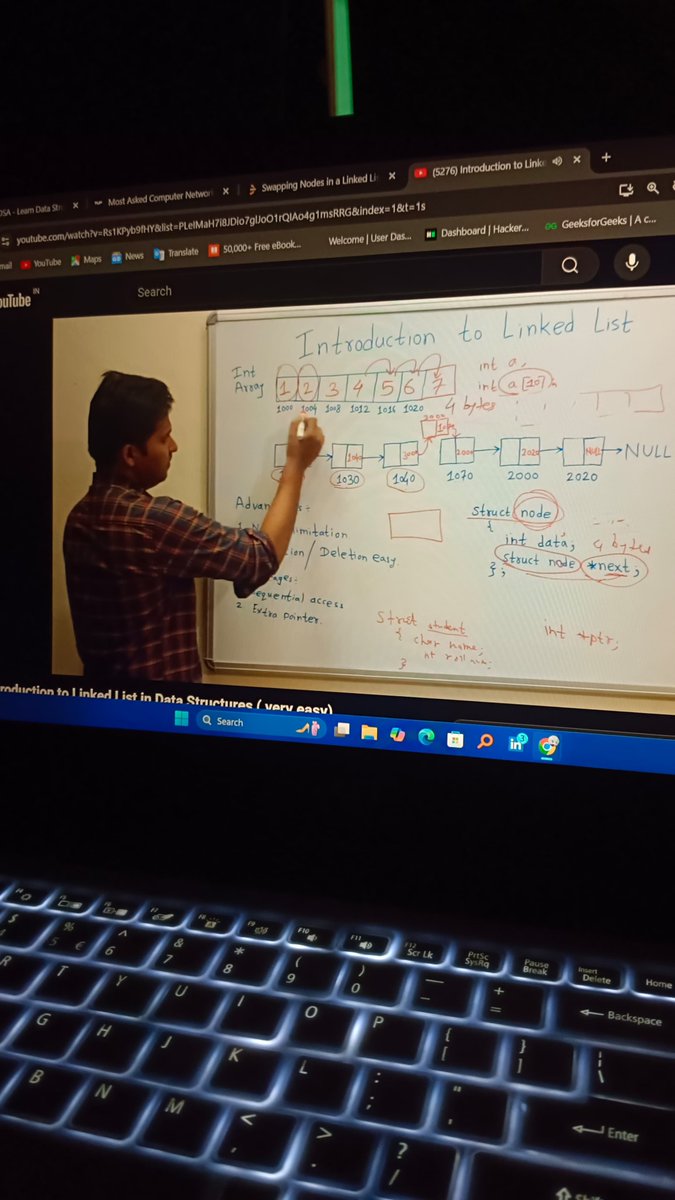 DSA - Learn Data Str
Most Asked Computer Network
Swapping Nodes in a Linked Li
(5276) Introduction to Linke
youtube.com/watch?v=Rs1KPyb9fHY&list=PLeIMaH7i8JDio7gUoO1rQIAo4g1msRRG&index=1&t=1s
mail
YouTube
Maps
News
Translate
50,000+ Free eBook...
Welcome | User Das...
Dashboard | Hacker...
GeeksforGeeks | A c...
ouTube IN
Search
Introduction to Linked List
Int Array
1 2 3 4 5 6 7
1000 1004 1008 1012 1016 1020
int a,
int a[10]
4 bytes
1040
2000
2020
NULL
NULL
1030 1040 1070 2000 2020
struct node
{
int data;
4 bytes
struct node *next;
};
/ Deletion easy
equential access
2 Extra pointer.
struct student
{ char name;
}
int *ptr;
roduction to Linked List in Data Structures ( very easy)
Search
in 3
F7 F8 F9 F10 F11 F12
Scr Lk
PrtSc
SysRq
Pause
Break
Insert
Delete
Home
$
% 5 €
^ 6
& 7
* 8
( 9
) 0
—
-
+ =
Backspace
R T Y U I O P { [ } ] | \
G H J K L : ; " ' Enter
B N M < , > . ? /